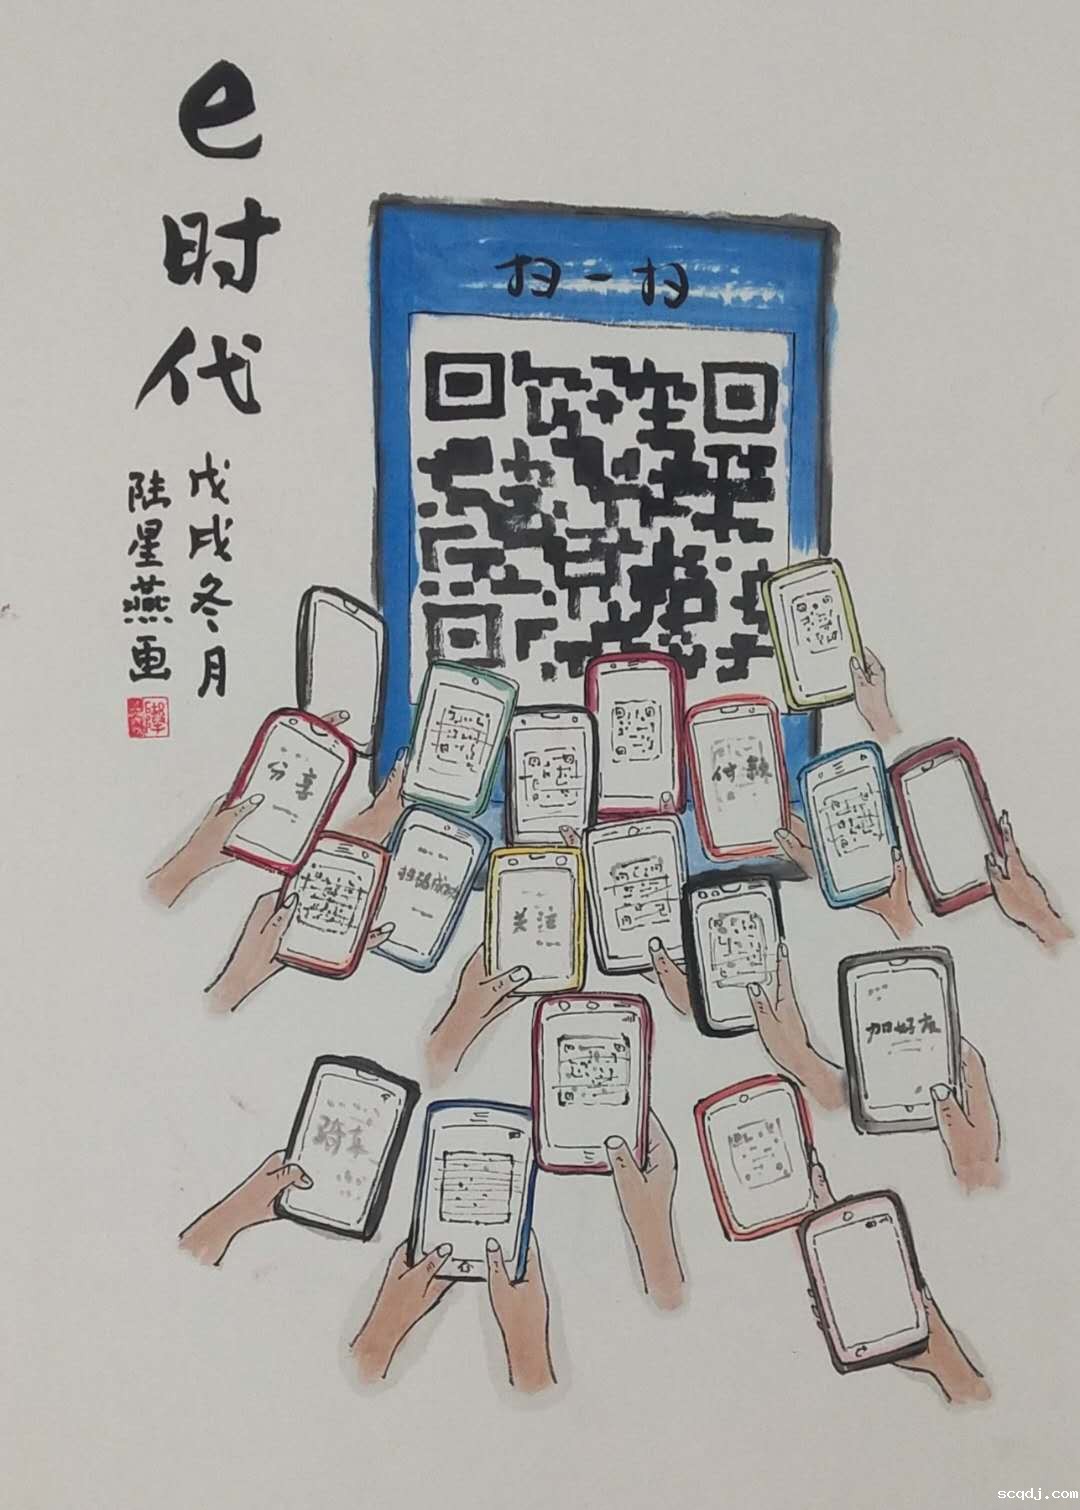 e时代
戊戌冬月
陆星燕画
扫一扫
分享
付款
扫码成功
关注
加好友
骑车
scqdj.com